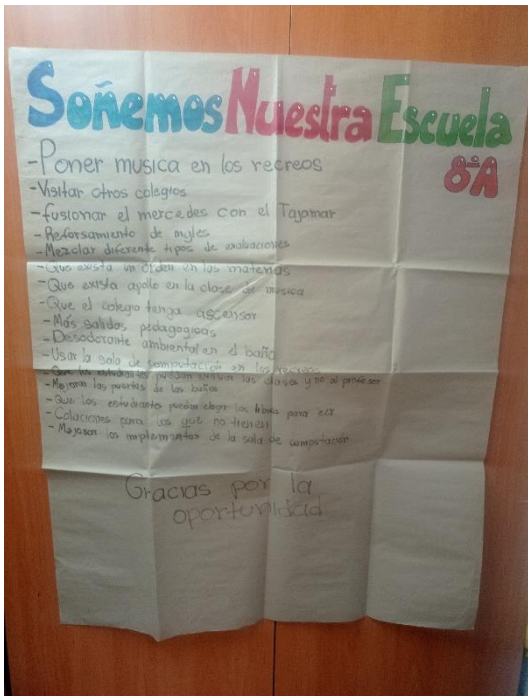 Soñemos Nuestra Escuela
8ºA
-Poner musica en los recreos
-Visitar otros colegios
-fusionar el mercedes con el Tajamar
-Reforsamiento de ingles
-Mezclar diferente tipos de evaluaciones
-Que exista un orden en las materias
-Que exista apollo en la clase de musica
-Que el colegio tenga ascensor
-Más salidas pedagogicas
-Desodorante ambiental en el baño
-Usar la sala de computación en los recreos
-Que los estudiantes puedan las clases y no al profesor
-Mejorar las puertas de los baños
-Que los estudiantes puedan elegir los libros para
-Colaciones para los que no tienen
-Mejorar los implementos de la sala de computación
Gracias por la
oportunidad